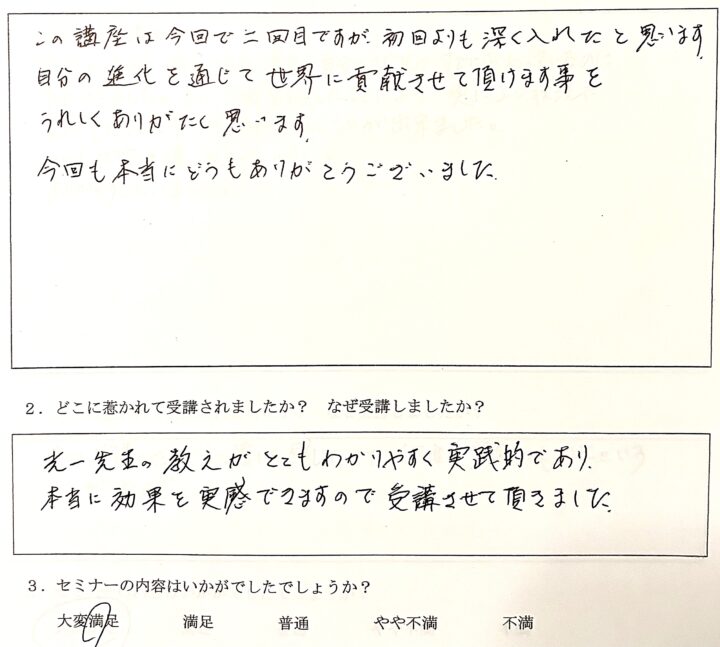 この講座は今回で二回目ですが、初回よりも深く入れたと思います。
自分の進化を通じて世界に貢献させて頂けます事を
うれしくありがたく思います。
今回も本当にどうもありがとうございました。
2．どこに惹かれて受講されましたか？　なぜ受講しましたか？
光一先生の教えがとてもわかりやすく実践的であり、
本当に効果を実感できますので受講させて頂きました。
3．セミナーの内容はいかがでしたでしょうか？
大変満足　満足　普通　やや不満　不満